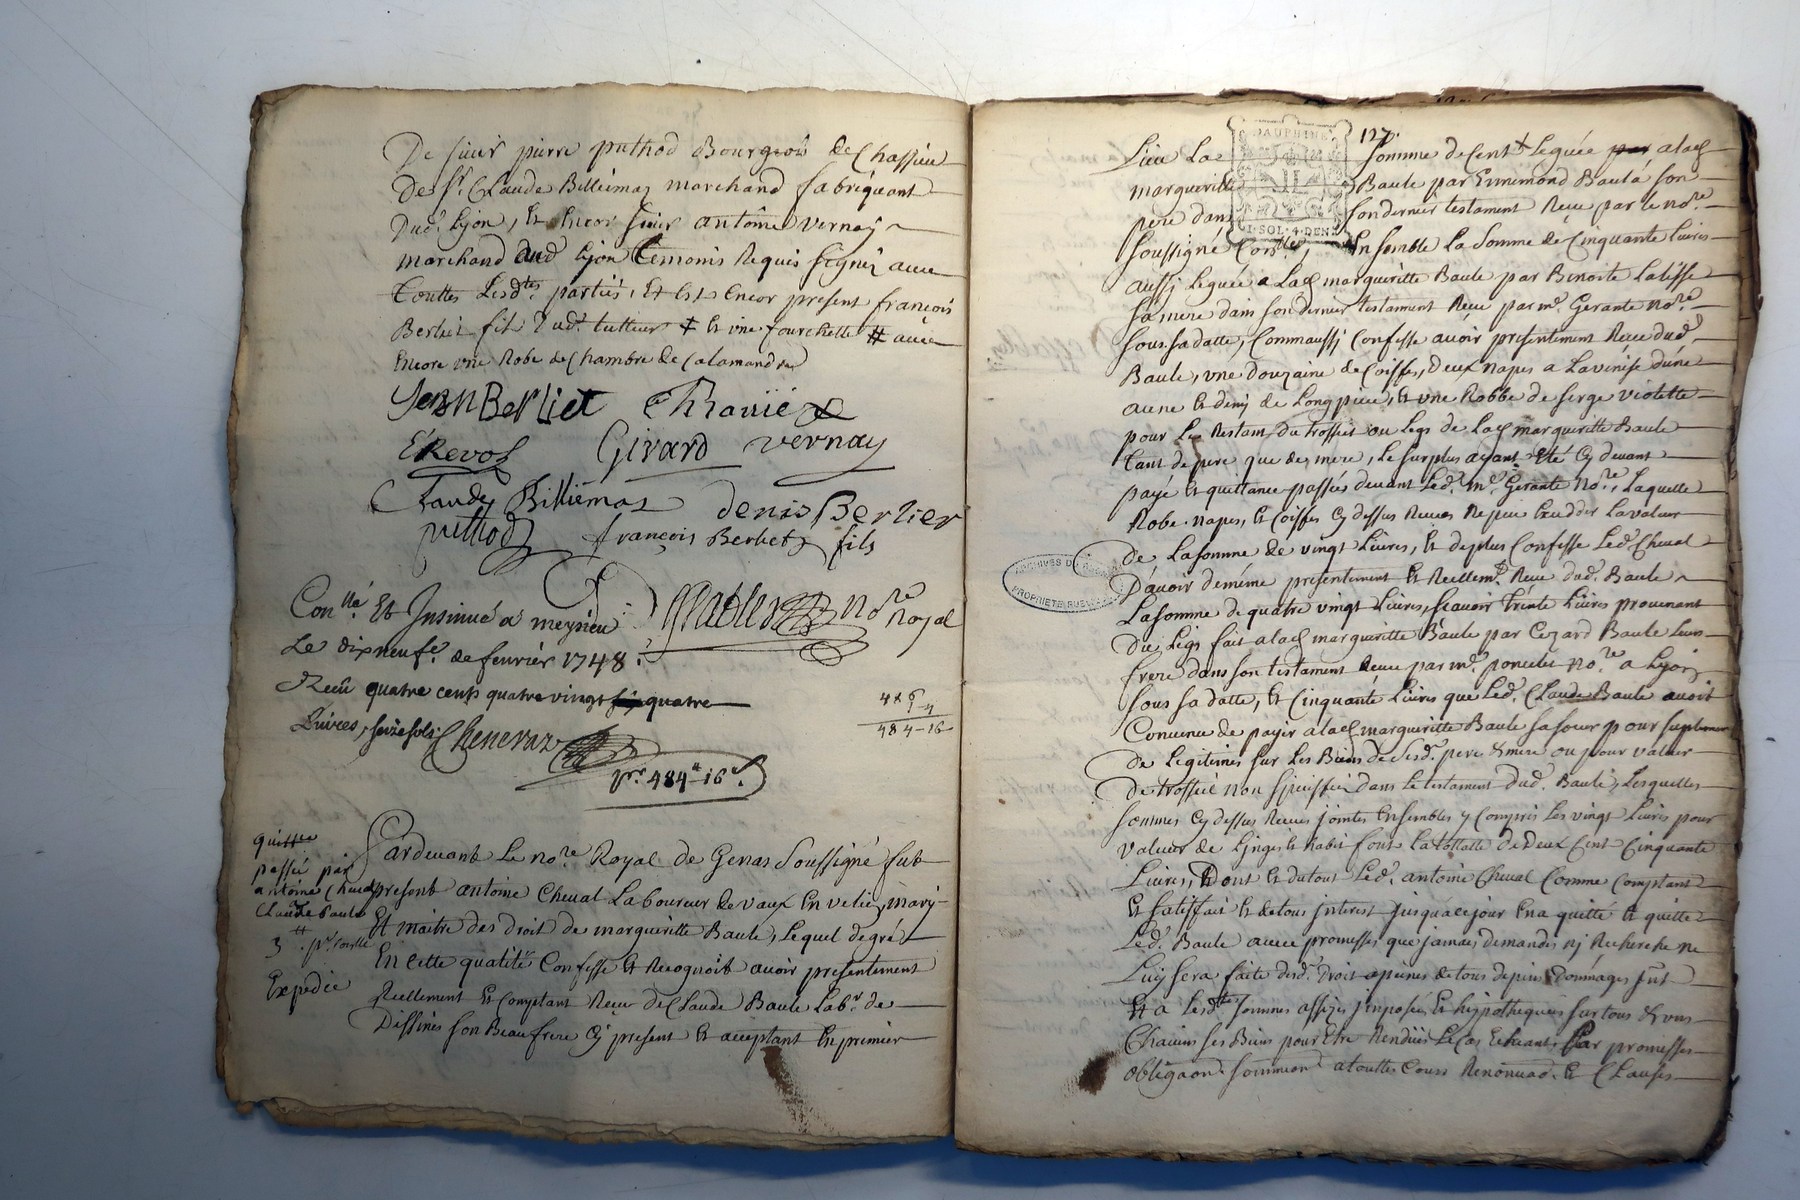 De sieur pierre puthod Bourgeois de Chassieu
De Sr. Claude Billiémaz marchand fabriquant
Dud. Lyon, Et Encor sieur antoine vernay
marchand dud Lyon temoins Requis signéz avec
touttes Lesdtes. parties, Et Est Encor present françois
Berliet fils dud. tutteur ‡ Et une fourchette # avec
Encore une Robe de Chambre de Calamandre
Jean Berliet
EKevol Girard vernay
Claude Billiémaz denis Berlier
puthod françois Berliet fils
nore Royal
Conlle. Et Insinué a meyzieu
Le dixneufe. de fevrier 1748.
Receu quatre cents quatre vingt quatre
Livres, seize sols Cheneraz
484-16
pr. 484tt 16s.
quittce
passée par
antoine Cheval
Claude Baule
3tt
Expedie
Pardevant Le nore. Royal de Genas Soussigné fut
present antoine Cheval Laboureur de vaux En velin, mary
Et maitre des droit de margueritte Baule, Lequel de gré
En cette qualité Confesse Et Recognoit avoir presentement
Reellement Et Comptant Receu de Claude Baule Labr. de
Dissines son Beaufrere Cy present Et acceptant En premier
DAUPHINE
1·SOL·4·DEN
127.
Lieu La somme de Cent tt Leguée par a lad
margueritte Baule par Ennemond Baule son
pere dans son dernier testament Receu par le nore.
soussigné Ensemble La Somme de Cinquante Livres
aussi Leguée a Lad margueritte Baule par Benoite Latisse
sa mere dans son dernier testament Receu par me. Gerante nore.
sous sa datte, Comm aussi Confesse avoir presentement Receu dud.
Baule, une douzaine de Coiffes, deux napes a La venise d'une
aune Et demy de Long piece, Et une Robbe de serge violette
pour Le Restant du trossel ou Legs de Lad margueritte Baule
tant de pere que de mere, Le surplus ayant Eté Cy devant
payé Et quittance passée devant Led. me. Gerante nore. Laquelle
Robe, napes, Et Coiffes Cy dessus Receues La valeur
de La somme de vingt Livres, Et de plus Confesse Led. Cheval
D'avoir de méme presentement Et Reellemt. Receu dud. Baule
ARCHIVES DU
PROPRIETE
La somme de quatre vingt Livres, scavoir trente Livres provenant
Du Legs fait a lad margueritte Baule par Cezard Baule Leur
frere dans son testament Receu par me. poncelet nore. a Lyon
sous sa datte, Et Cinquante Livres que Led. Claude Baule avoit
Convenu de payer a lad margueritte Baule sa soeur pour suplement
de Legitimes sur Les Biens de Sesd. pere & mere ou pour valeur
de trossel non specifié dans Le testament dud. Baule, Lesquelles
sommes Cy dessus Receues jointes Ensembles y Compris Les vingt Livres pour
valeur de Linges Et habit font La tottalle de deux Cent Cinquante
Livres, Dont Et du tout Led. antoine Cheval Comme Comptant
Et satisfait Et de tous jnterest jusqua ce jour En a quitté Et quitte
Led. Baule avec promesses que jamais demandes nj Recherche ne
Luy sera faite a peines de tous depens Dommages jnt
Et a Lesdtes. sommes assizes jmposées Et hypothequées sur tous & uns
Chacuns ses Biens pour Etre Rendües Le Cas Echeant, Par promesses
obligaon. soumiond. a touttes Cours Renonuad. Et Clauses